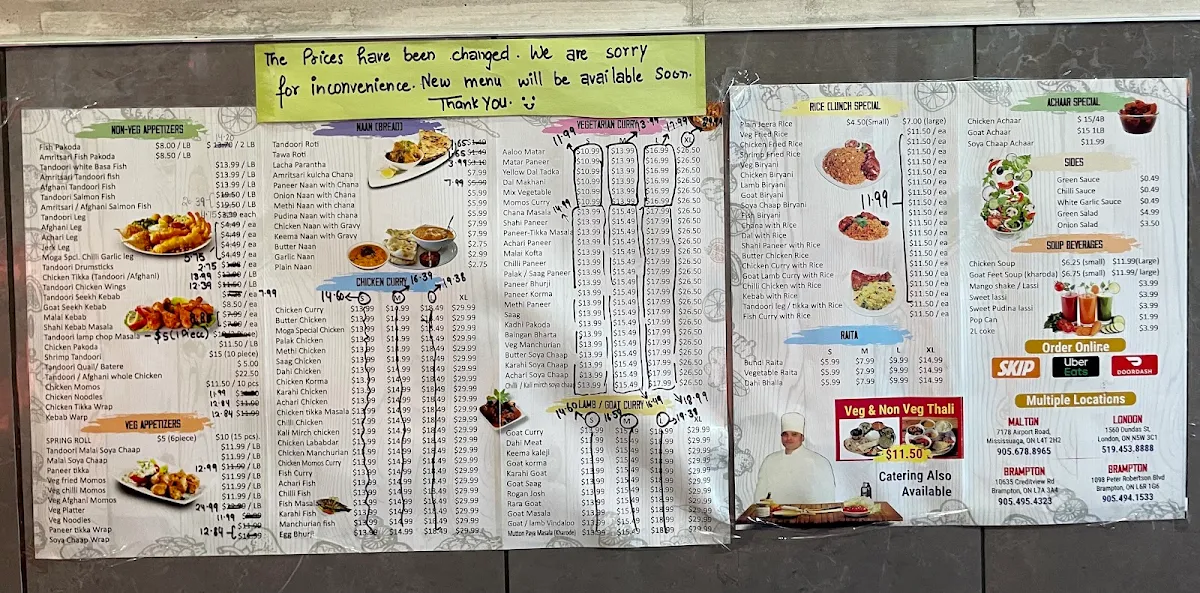 The Prices have been changed. We are sorry
for inconvenience. New menu will be available soon.
Thank you.
NON-VEG APPETIZERS
Fish Pakoda $8.00 / LB 14.20 $ 13.70 / 2 LB
Amritsari Fish Pakoda $8.50 / LB
Tandoori white Basa Fish $13.99 / LB
Amritsari Tandoori Fish $13.99 / LB
Afghani Tandoori Fish $13.99 / LB
Tandoori Salmon Fish
Amritsari / Afghani Salmon Fish $19.50 / LB
Tandoori Leg each
Afghani Leg $4.49 / ea
Achari Leg $4.49 / ea
Jerk Leg $4.49 / ea
Moga Spcl. Chilli Garlic leg 5.15
Tandoori Drumsticks 2.75
Chicken Tikka (Tandoori /Afghani) 18.99
Tandoori Chicken Wings 12.39 $11.50 / LB
Tandoori Seekh Kebab 7.99
Goat Seekh Kebab $8.50 / ea
Malai Kebab
Shahi Kebab Masala 8.80
Tandoori lamp chop Masala $5 (1 Piece)
Chicken Pakoda $11.50 / LB
Shrimp Tandoori $15 (10 piece)
Tandoori Quail/ Batere $ 5.00
Tandoori / Afghani whole Chicken $22.50
Chicken Momos $11.50 / 10 pcs
Chicken Noodles 11.99
Chicken Tikka Wrap 12.84 $11.99
Kebab Wrap 12.84 $11.99
VEG APPETIZERS
SPRING ROLL $5 (6piece) $10 (15 pcs).
Tandoori Malai Soya Chaap $11.99 / LB
Malai Soya Chaap $11.99 / LB
Paneer tikka 12.99 $11.99 / LB
Veg fried Momos $11.99 / LB
Veg chilli Momos $11.99 / LB
Veg Afghani Momos $11.99 / LB
Veg Platter 24.99
Veg Noodles 11.99
Paneer tikka Wrap 12.84
Soya Chaap Wrap
NAAN (BREAD)
Tandoori Roti 1.65 $1.40
Tawa Roti 1.65 $1.49
Lacha Parantha 3.99
Amritsari kulcha Chana $7.99
Paneer Naan with Chana 7.99 $5.99
Onion Naan with Chana $5.99
Methi Naan with Chana $5.99
Pudina Naan with Chana $5.99
Chicken Naan with Gravy $7.99
Keema Naan with Gravy $7.99
Butter Naan $2.75
Garlic Naan $2.99
Plain Naan $2.75
CHICKEN CURRY
14.60 S 16.39 M 19.38 L XL
Chicken Curry $13.99 $14.99 $18.49 $29.99
Butter Chicken $13.99 $14.99 $18.49 $29.99
Moga Special Chicken $13.99 $14.99 $18.49 $29.99
Palak Chicken $13.99 $14.99 $18.49 $29.99
Methi Chicken $13.99 $14.99 $18.49 $29.99
Saag Chicken $13.99 $14.99 $18.49 $29.99
Dahi Chicken $13.99 $14.99 $18.49 $29.99
Chicken Korma $13.99 $14.99 $18.49 $29.99
Karahi Chicken $13.99 $14.99 $18.49 $29.99
Achari Chicken $13.99 $14.99 $18.49 $29.99
Chicken tikka Masala $13.99 $14.99 $18.49 $29.99
Chilli Chicken $13.99 $14.99 $18.49 $29.99
Kali Mirch chicken $13.99 $14.99 $18.49 $29.99
Chicken Lababdar $13.99 $14.99 $18.49 $29.99
Chicken Manchurian $13.99 $14.99 $18.49 $29.99
Chicken Momos Curry $13.99 $14.99 $18.49 $29.99
Fish Curry $13.99 $14.99 $18.49 $29.99
Achari Fish $13.99 $14.99 $18.49 $29.99
Chilli Fish $13.99 $14.99 $18.49 $29.99
Fish Masala $13.99 $14.99 $18.49 $29.99
Karahi Fish $13.99 $14.99 $18.49 $29.99
Manchurian fish $13.99 $14.99 $18.49 $29.99
Egg Bhurji $13.99 $14.99 $18.49 $29.99
VEGETARIAN CURRY
11.99 13.99 17.99 XL
Aaloo Matar $10.99 $13.99 $16.99 $26.50
Matar Paneer $10.99 $13.99 $16.99 $26.50
Yellow Dal Tadka $10.99 $13.99 $16.99 $26.50
Dal Makhani $10.99 $13.99 $16.99 $26.50
Mix Vegetable $10.99 $13.99 $16.99 $26.50
Momos Curry $10.99 $13.99 $16.99 $26.50
Chana Masala 14.99 $13.99 $15.49 $17.99 $26.50
Shahi Paneer $13.99 $15.49 $17.99 $26.50
Paneer-Tikka Masala $13.99 $15.49 $17.99 $26.50
Achari Paneer $13.99 $15.49 $17.99 $26.50
Malai Kofta $13.99 $15.49 $17.99 $26.50
Chilli Paneer $13.99 $15.49 $17.99 $26.50
Palak / Saag Paneer $13.99 $15.49 $17.99 $26.50
Paneer Bhurji $13.99 $15.49 $17.99 $26.50
Paneer Korma $13.99 $15.49 $17.99 $26.50
Methi Paneer $13.99 $15.49 $17.99 $26.50
Saag $13.99 $15.49 $17.99 $26.50
Kadhi Pakoda $13.99 $15.49 $17.99 $26.50
Baingan Bharta $13.99 $15.49 $17.99 $26.50
Veg Manchurian $13.99 $15.49 $17.99 $26.50
Butter Soya Chaap $13.99 $15.49 $17.99 $26.50
Karahi Soya Chaap $13.99 $15.49 $17.99 $26.50
Achari Soya Chaap $13.99 $15.49 $17.99 $26.50
Chilli / Kali mirch soya chaap $13.99 $15.49 $17.99 $26.50
18.99
LAMB / GOAT CURRY
14.60 S M L 19.38
Goat Curry $13.99 $15.49 $18.99 $29.99
Dahi Meat $13.99 $15.49 $18.99 $29.99
Keema kaleji $13.99 $15.49 $18.99 $29.99
Goat korma $13.99 $15.49 $18.99 $29.99
Karahi Goat $13.99 $15.49 $18.99 $29.99
Goat Saag $13.99 $15.49 $18.99 $29.99
Rogan Josh $13.99 $15.49 $18.99 $29.99
Rara Goat $13.99 $15.49 $18.99 $29.99
Goat Masala $13.99 $15.49 $18.99 $29.99
Goat / lamb Vindaloo $13.99 $15.49 $18.99 $29.99
Mutton Paya Masala (Kharode) $13.99 $15.49 $18.99 $29.99
RICE (LUNCH SPECIAL
Plain Jeera Rice $4.50(Small) $7.00 (large)
Veg Fried Rice $11.50 / ea
Chicken Fried Rice $11.50 / ea
Shrimp Fried Rice $11.50 / ea
Veg Biryani $11.50 / ea
Chicken Biryani $11.50 / ea
Lamb Biryani $11.50 / ea
Goat Biryani $11.50 / ea
Soya Chaap Biryani $11.50 / ea
Fish Biryani 11.99 $11.50 / ea
Chana with Rice $11.50 / ea
Dal with Rice $11.50 / ea
Shahi Paneer with Rice $11.50 / ea
Butter Chicken Rice $11.50 / ea
Chicken Curry with Rice $11.50 / ea
Goat Lamb Curry with Rice $11.50 / ea
Chilli Chicken with Rice $11.50 / ea
Kebab with Rice $11.50 / ea
Tandoori leg / tikka with Rice $11.50 / ea
Fish Curry with Rice $11.50 / ea
RAITA
S M L XL
Bundi Raita $5.99 $7.99 $9.99 $14.99
Vegetable Raita $5.99 $7.99 $9.99 $14.99
Dahi Bhalla $5.99 $7.99 $9.99 $14.99
Veg & Non Veg Thali
$11.50
Catering Also
Available
ACHAAR SPECIAL
Chicken Achaar $ 15/4B
Goat Achaar $15 1LB
Soya Chaap Achaar $11.99
SIDES
Green Sauce $0.49
Chilli Sauce $0.49
White Garlic Sauce $0.49
Green Salad $4.99
Onion Salad $3.50
SOUP BEVERAGES
Chicken Soup $6.25 (small) $11.99(Large)
Goat Feet Soup (kharoda) $6.75 (small) $11.99/large)
Mango shake / Lassi $3.99
Sweet lassi $3.99
Sweet Pudina lassi $3.99
Pop Can $1.99
2L coke $3.99
Order Online
SKIP
Uber Eats
DOORDASH
Multiple Locations
MALTON
7178 Airport Road,
Mississuaga, ON L4T 2H2
905.678.8965
LONDON
1560 Dundas St,
London, ON N5W 3C1
519.453.8888
BRAMPTON
10635 Creditview Rd
Brampton, ON L7A 3A4
905.495.4323
BRAMPTON
1098 Peter Robertson Blvd
Brampton, ON L6R 1G6
905.494.1533